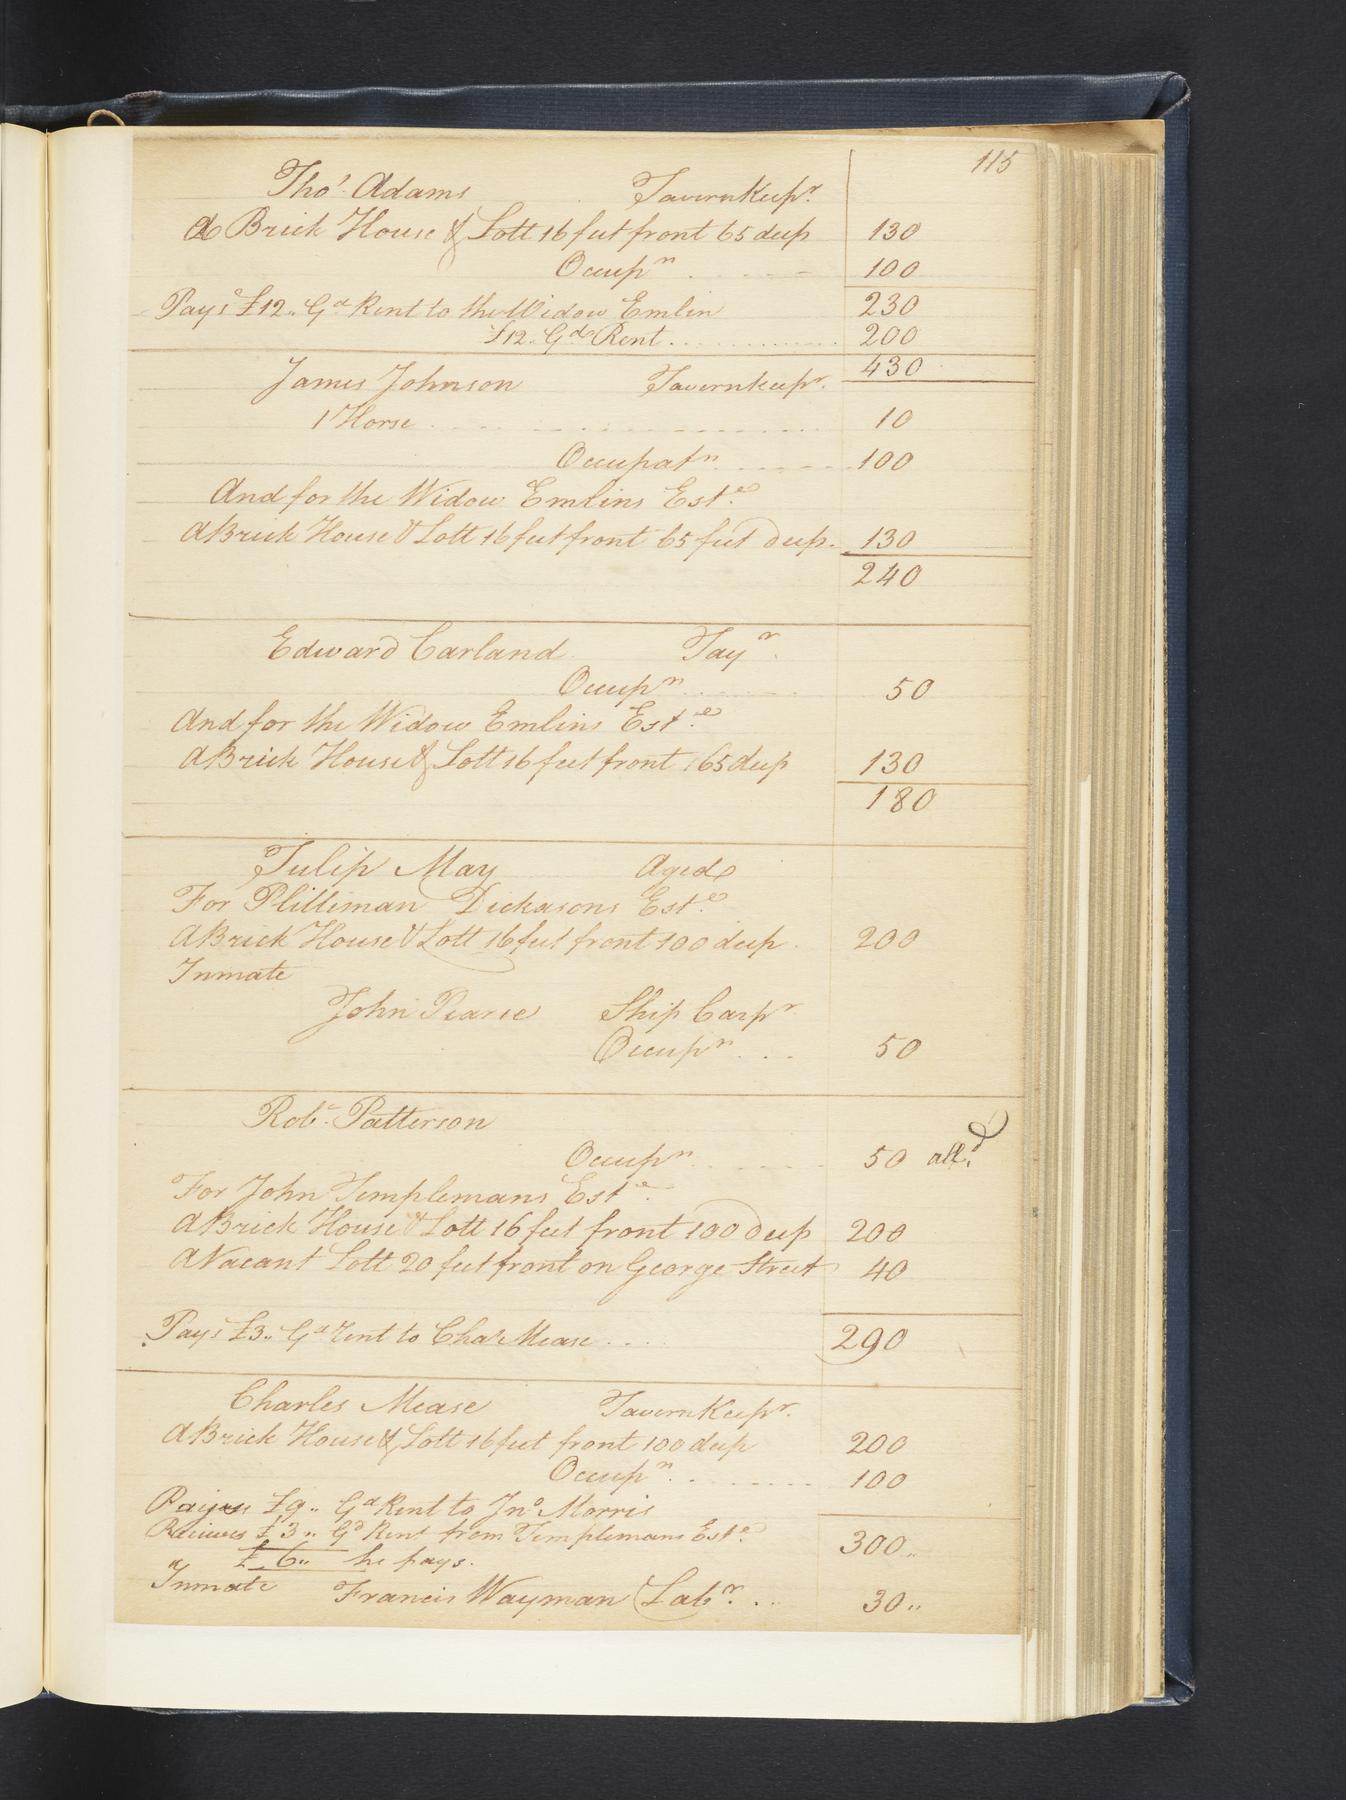 115
Thos. Adams Tavernkeepr.
A Brick House & Lott 16 feet front 65 deep 130
Occupn. 100
Pays £12.. Gd Rent to the Widow Emlin 230
£12.. Gd Rent 200
430
James Johnson Tavernkeepr.
1 Horse 10
Occupatn 100
And for the Widow Emlins Este.
A Brick House & Lott 16 feet front 65 feet deep. 130
240
Edward Carland Tayr.
Occupn 50
And for the Widow Emlins Este.
A Brick House & Lott 16 feet front 65 deep 130
180
Tulip May Aged
For Plilliman Dickasons Este.
A Brick House & Lott 16 feet front 100 deep 200
Inmate
John Pearse Ship Carpr
Occupn 50
Robt. Patterson
Occupn 50 alld.
For John Templemans Este.
A Brick House & Lott 16 feet front 100 deep 200
A Vacant Lott 20 feet front on George Street 40
Pays £3.. Gd rent to Chas Mease 290
Charles Mease Tavernkeepr.
A Brick House & Lott 16 feet front 100 deep 200
Occupn. 100
Pays £9.. Gd Rent to Jno Morris
Receives £3.. Gd Rent from Templemans Este 300..
" £6.. he pays.
Inmate Francis Wayman Labr. 30..